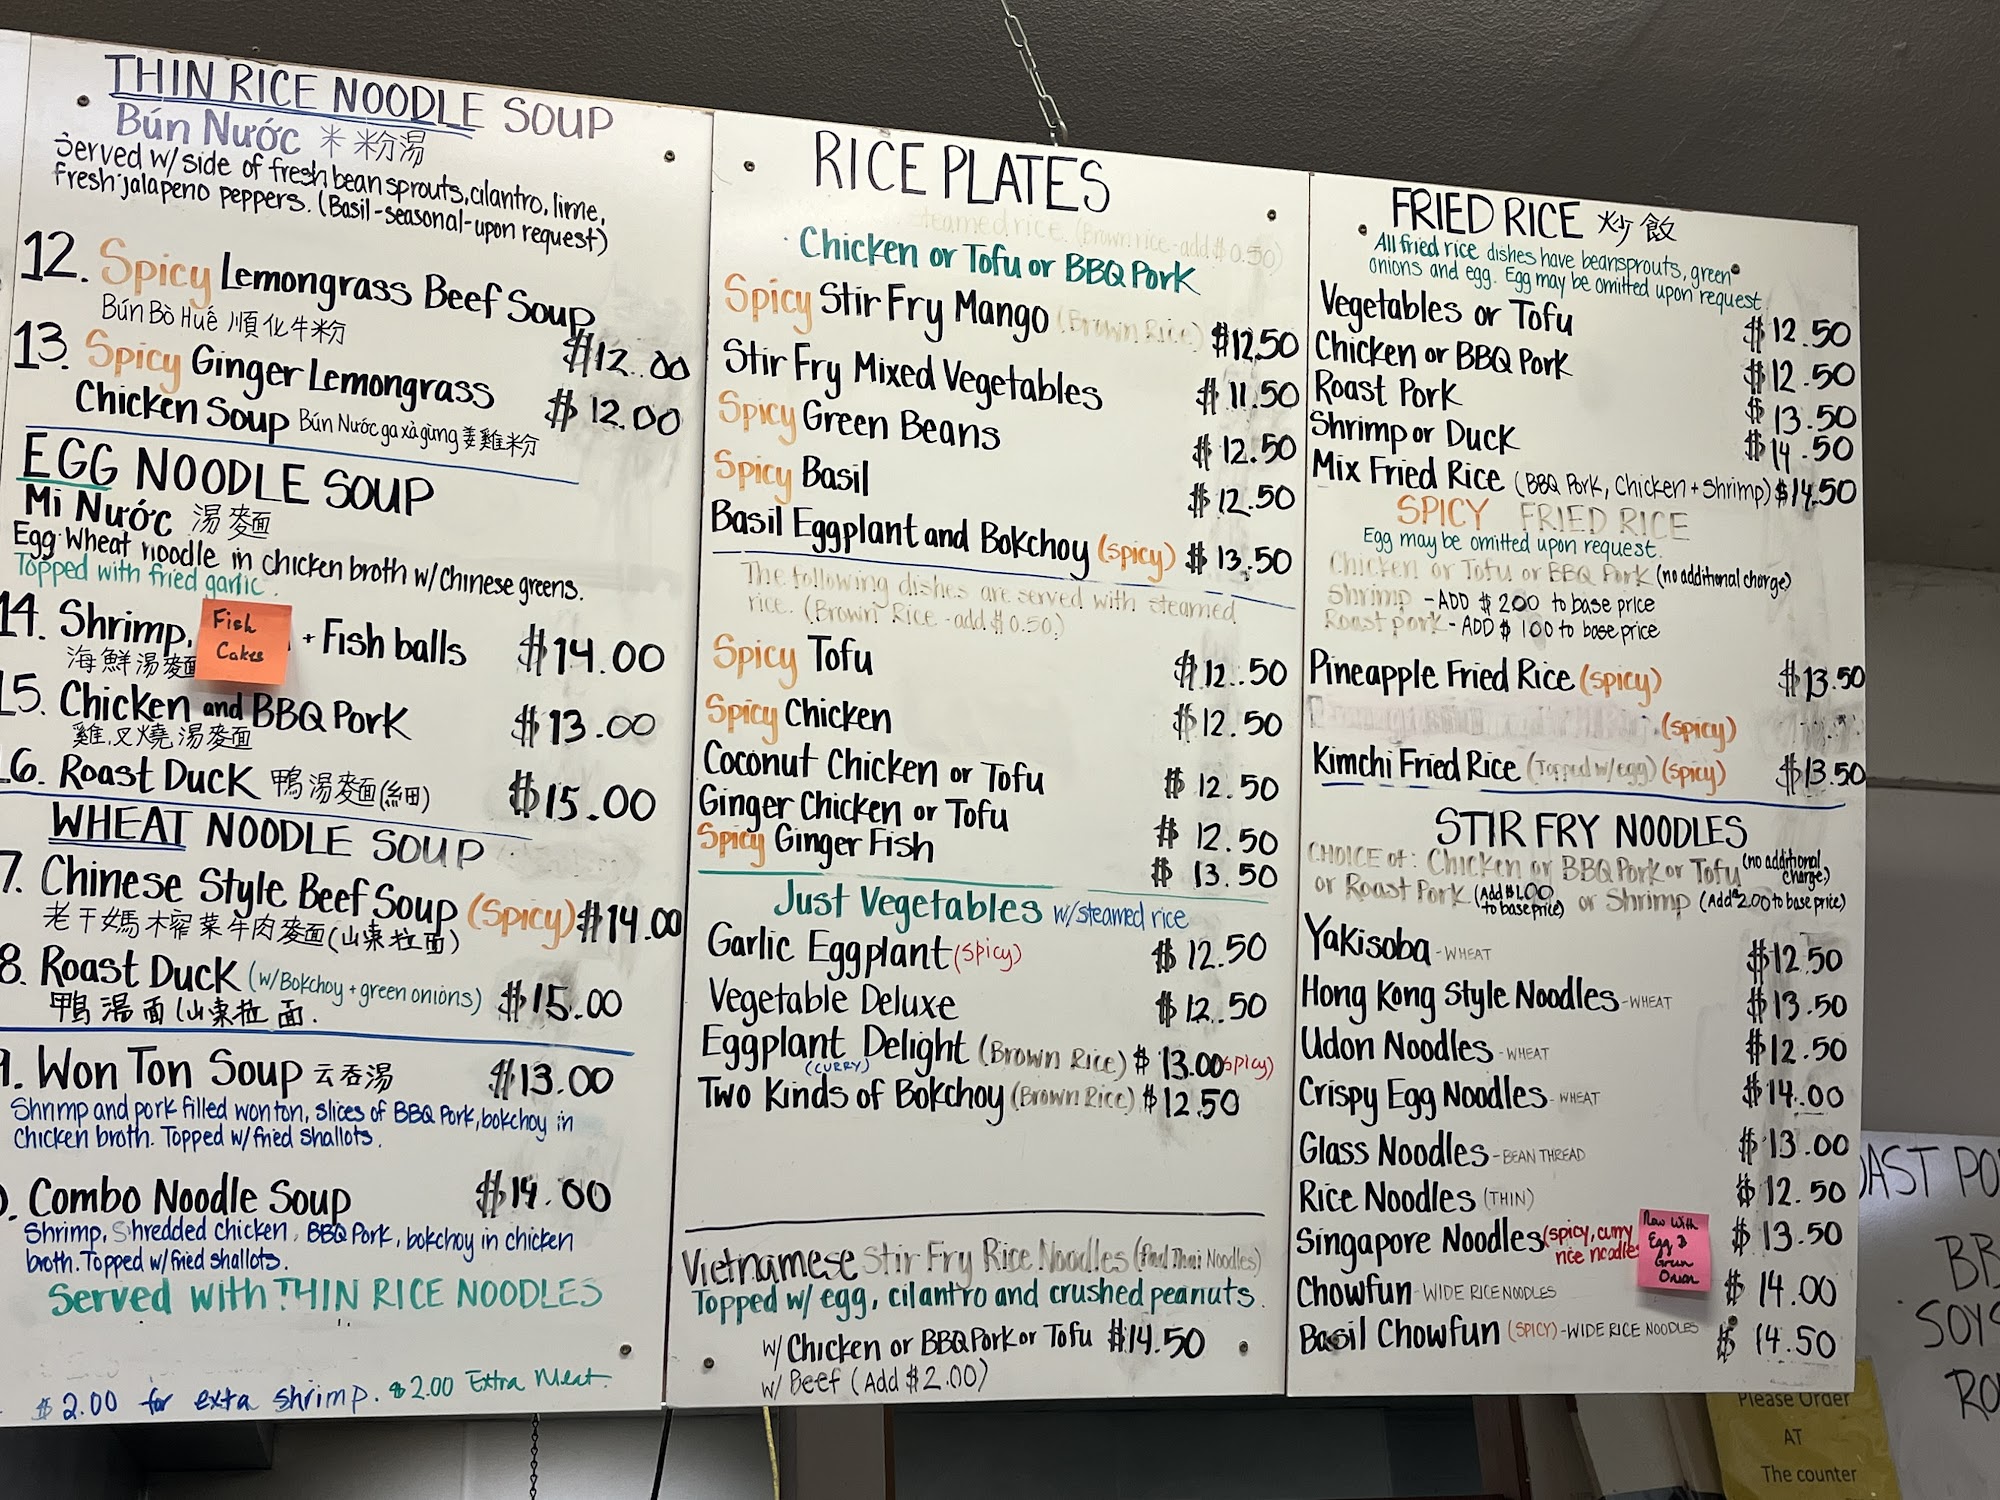 THIN RICE NOODLE SOUP
Bún Nước 米粉湯
Served w/ side of fresh bean sprouts, cilantro, lime,
fresh jalapeno peppers. (Basil-seasonal-upon request)
12. Spicy Lemongrass Beef Soup
Bún Bò Huế 順化牛粉 $12.00
13. Spicy Ginger Lemongrass
Chicken Soup Bún Nước ga xả gừng 姜雞粉 $12.00
EGG NOODLE SOUP
Mì Nước 湯麵
Egg Wheat noodle in chicken broth w/ Chinese greens.
Topped with fried garlic.
14. Shrimp, Fish Cakes + Fish balls $14.00
海鮮湯麵
15. Chicken and BBQ Pork $13.00
雞,叉燒湯麵
16. Roast Duck 鴨湯麵(細) $15.00
WHEAT NOODLE SOUP
7. Chinese Style Beef Soup (Spicy) $14.00
老干媽木窄菜牛肉麵(山東拉面)
8. Roast Duck (w/Bokchoy + green onions) $15.00
鴨湯面(山東拉面.
9. Won Ton Soup 云吞湯 $13.00
Shrimp and pork filled wonton, slices of BBQ Pork, bokchoy in
chicken broth. Topped w/ fried shallots.
0. Combo Noodle Soup $14.00
Shrimp, Shredded chicken, BBQ Pork, bokchoy in chicken
broth. Topped w/ fried shallots.
Served with THIN RICE NOODLES
$2.00 for extra shrimp. $2.00 Extra Meat.
RICE PLATES
steamed rice. (Brown rice - add $0.50)
Chicken or Tofu or BBQ Pork
Spicy Stir Fry Mango (Brown Rice) $12.50
Stir Fry Mixed Vegetables $11.50
Spicy Green Beans $12.50
Spicy Basil $12.50
Basil Eggplant and Bokchoy (spicy) $13.50
The following dishes are served with steamed
rice. (Brown Rice - add $0.50)
Spicy Tofu $12.50
Spicy Chicken $12.50
Coconut Chicken or Tofu $12.50
Ginger Chicken or Tofu $12.50
Spicy Ginger Fish $13.50
Just Vegetables w/steamed rice
Garlic Eggplant (spicy) $12.50
Vegetable Deluxe $12.50
Eggplant Delight (Brown Rice) $13.00 spicy)
(CURRY)
Two Kinds of Bokchoy (Brown Rice) $12.50
Vietnamese Stir Fry Rice Noodles (Pad Thai Noodles)
Topped w/ egg, cilantro and crushed peanuts.
w/ Chicken or BBQ Pork or Tofu $14.50
w/ Beef (Add $2.00)
FRIED RICE 炒飯
All fried rice dishes have beansprouts, green
onions and egg. Egg may be omitted upon request
Vegetables or Tofu $12.50
Chicken or BBQ Pork $12.50
Roast Pork $13.50
Shrimp or Duck $14.50
Mix Fried Rice (BBQ Pork, Chicken + Shrimp) $14.50
SPICY FRIED RICE
Egg may be omitted upon request.
Chicken or Tofu or BBQ Pork (no additional charge)
Shrimp - ADD $2.00 to base price
Roast pork - ADD $1.00 to base price
Pineapple Fried Rice (spicy) $13.50
(spicy)
Kimchi Fried Rice (Topped w/egg) (spicy) $13.50
STIR FRY NOODLES
CHOICE of: Chicken or BBQ Pork or Tofu (no additional charge)
or Roast Pork (Add $1.00 to base price) or Shrimp (Add $2.00 to base price)
Yakisoba - WHEAT $12.50
Hong Kong Style Noodles - WHEAT $13.50
Udon Noodles - WHEAT $12.50
Crispy Egg Noodles - WHEAT $14.00
Glass Noodles - BEAN THREAD $13.00
Rice Noodles (THIN) $12.50
Singapore Noodles (spicy, curry rice noodles $13.50
Now With
Egg &
Green
Onion
Chowfun - WIDE RICE NOODLES $14.00
Basil Chowfun (SPICY) - WIDE RICE NOODLES $14.50
Please Order
AT
The counter